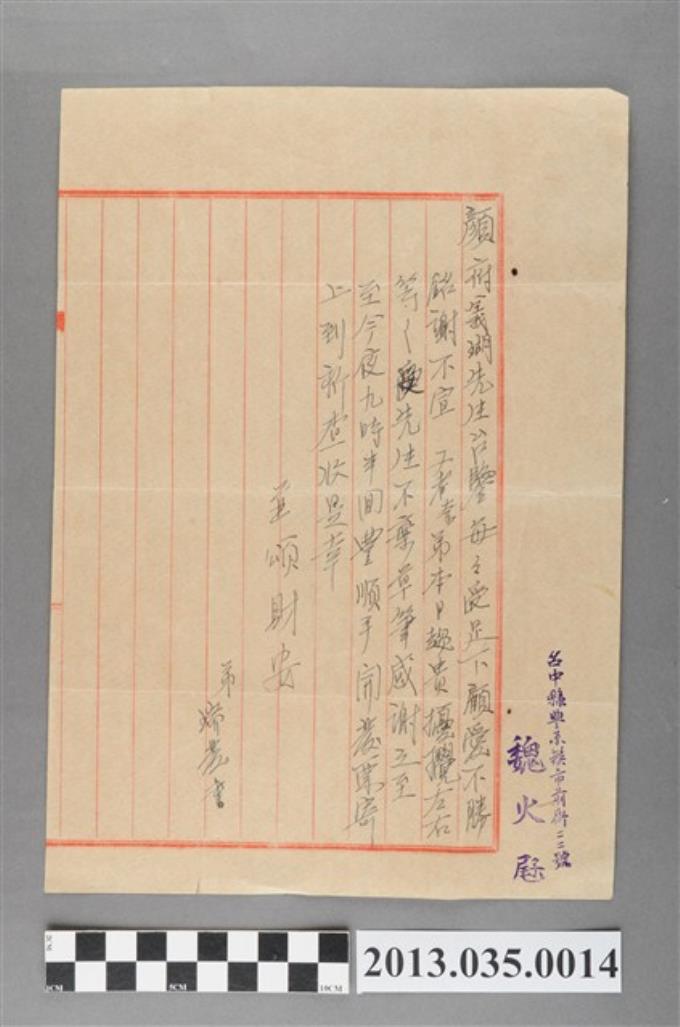 台中縣豐原鎮市前街二二號
魏火
顏府義瑚先生台鑒 每々受足下顧愛不勝
銘謝不宣 弟本日趨貴擾攪左右
等々受先生不棄草筆感謝之至
至今夜九時半間豐順手開
上到祈查收是幸
並頌財安
弟
書
5CM
10CM
2013.035.0014